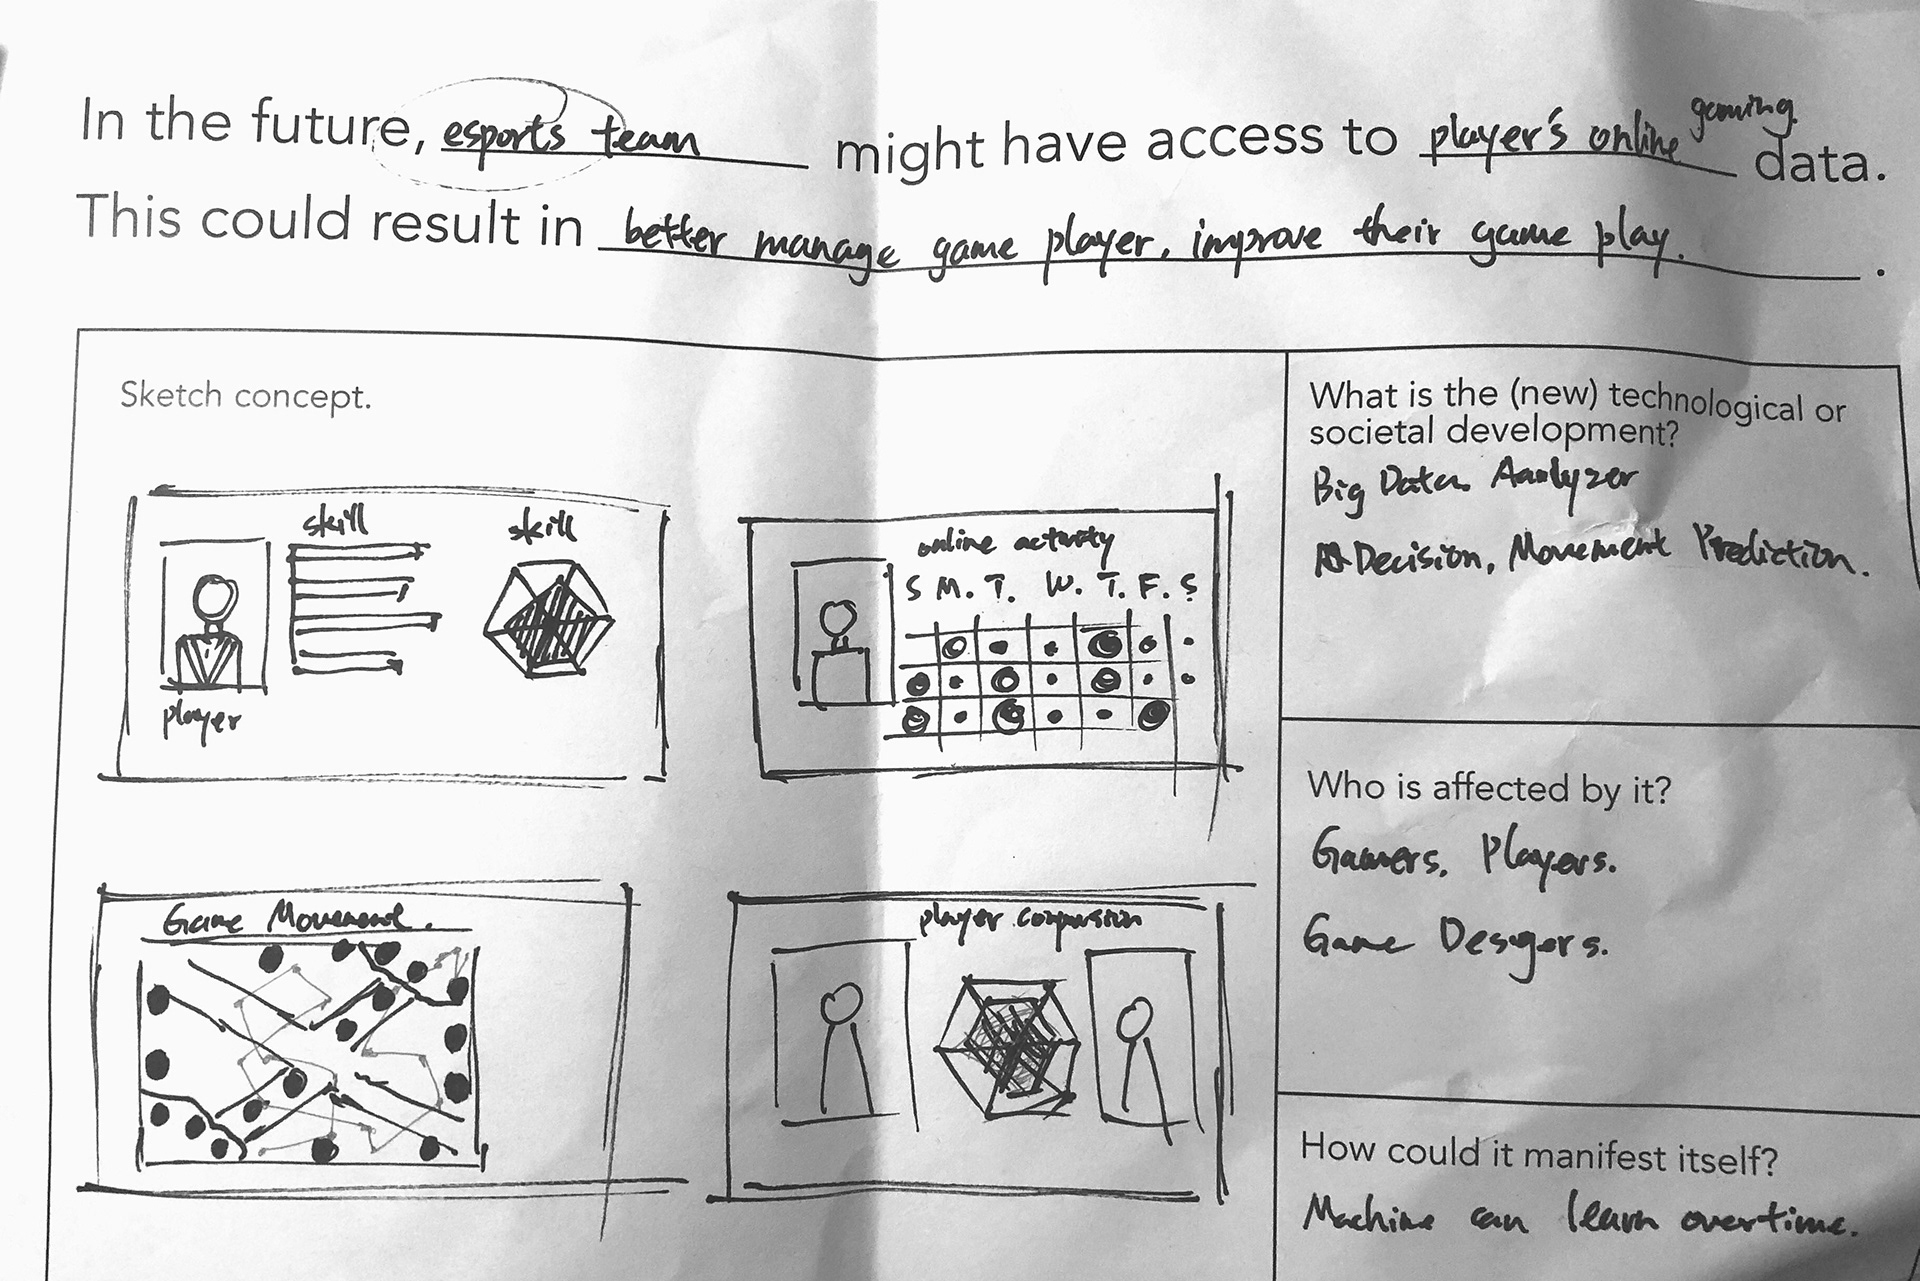 In the future, esports team might have access to player's online gaming data.
This could result in better manage game player, improve their game play.
Sketch concept.
skill
skill
player
online activity
S M. T. W. T. F. S
Game Movement.
player comparsion
What is the (new) technological or
societal development?
Big Data Aanlyzer
Decision, Movement Prediction.
Who is affected by it?
Gamers, Players.
Game Desigers.
How could it manifest itself?
Machine can learn overtime.